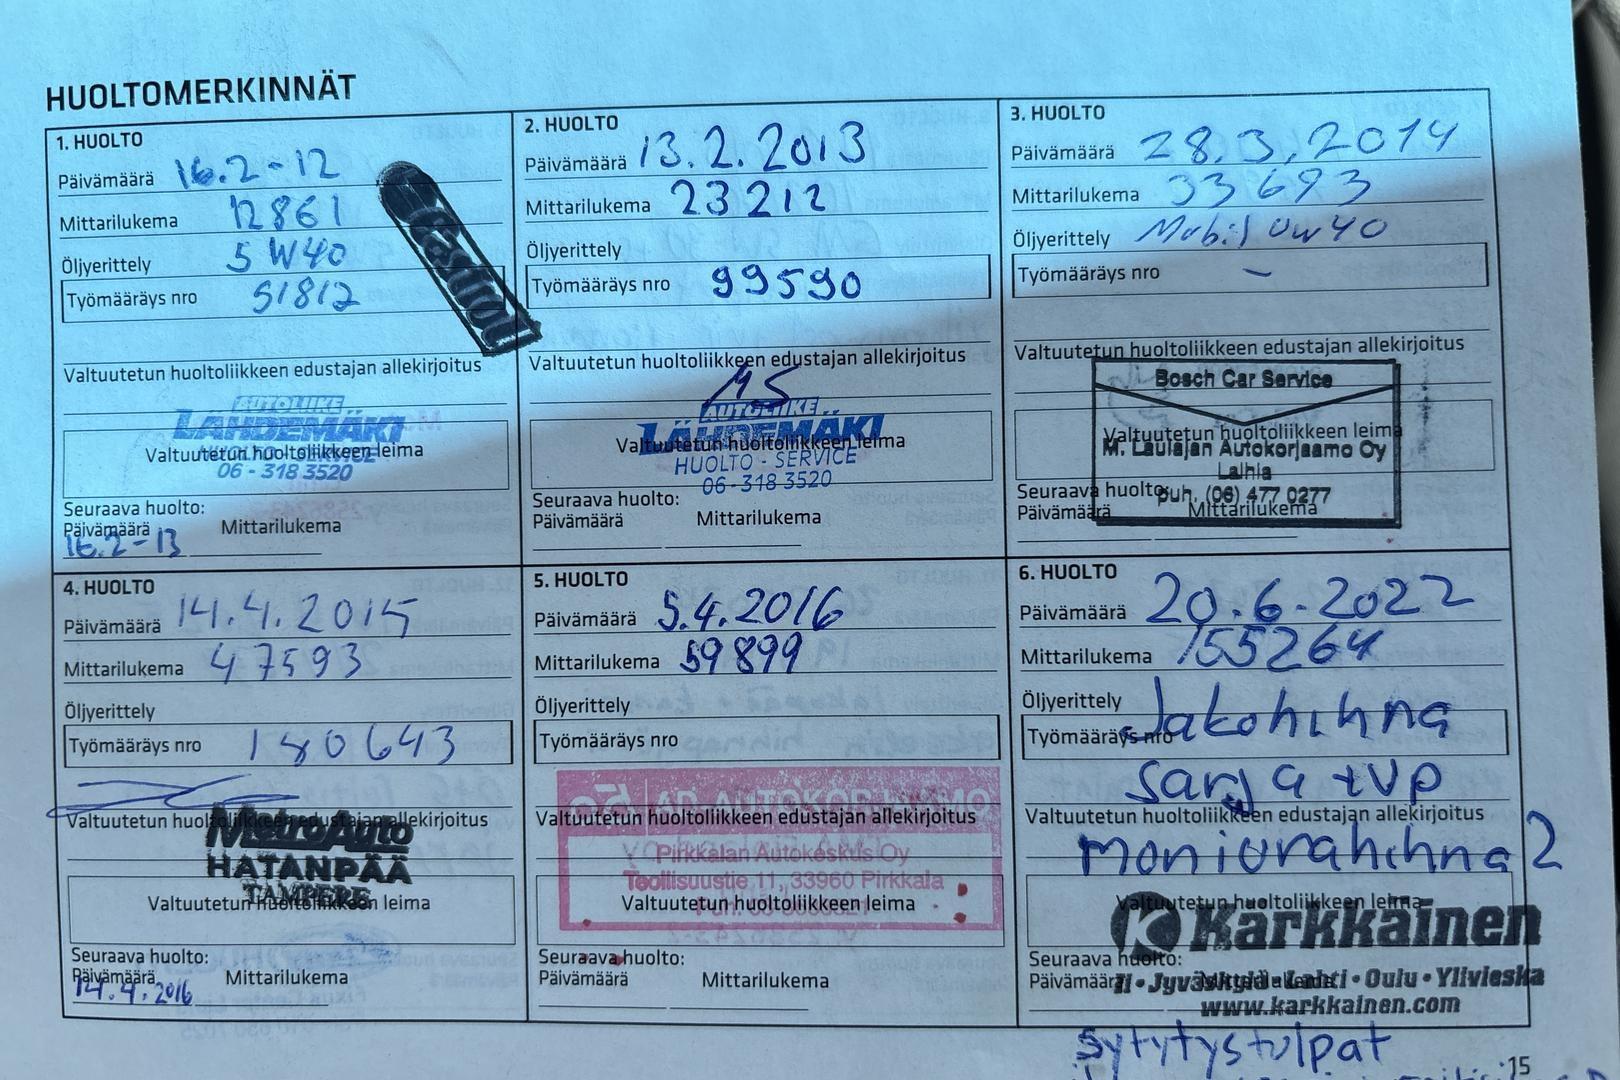 HUOLTOMERKINNÄT
1. HUOLTO
Päivämäärä 16.2-12
Mittarilukema 12861
Öljyerittely 5W40
Työmääräys nro 51812
Valtuutetun huoltoliikkeen edustajan allekirjoitus
AUTOLIIKE
LÄHDEMÄKI
Valtuutetun huoltoliikkeen leima
06 - 318 3520
Seuraava huolto:
Päivämäärä Mittarilukema
16.2-13
2. HUOLTO
Päivämäärä 13.2.2013
Mittarilukema 23212
Öljyerittely
Työmääräys nro 99590
Valtuutetun huoltoliikkeen edustajan allekirjoitus
MS
AUTOLIIKE
LÄHDEMÄKI
Valtuutetun huoltoliikkeen leima
HUOLTO - SERVICE
06 - 318 3520
Seuraava huolto:
Päivämäärä Mittarilukema
3. HUOLTO
Päivämäärä 28.3.2014
Mittarilukema 33693
Öljyerittely Mobil 0w40
Työmääräys nro –
Valtuutetun huoltoliikkeen edustajan allekirjoitus
Bosch Car Service
Valtuutetun huoltoliikkeen leima
M. Laulajan Autokorjaamo Oy
Laihia
puh. (06) 477 0277
Seuraava huolto:
Päivämäärä Mittarilukema
4. HUOLTO
Päivämäärä 14.4.2015
Mittarilukema 47593
Öljyerittely
Työmääräys nro 180643
Valtuutetun huoltoliikkeen edustajan allekirjoitus
MetroAuto
HATANPÄÄ
TAMPERE
Valtuutetun huoltoliikkeen leima
Seuraava huolto:
Päivämäärä Mittarilukema
14.4.2016
5. HUOLTO
Päivämäärä 5.4.2016
Mittarilukema 59899
Öljyerittely
Työmääräys nro
AD AUTOKORJAAMO
Valtuutetun huoltoliikkeen edustajan allekirjoitus
Pirkkalan Autokeskus Oy
Teollisuustie 11, 33960 Pirkkala
Valtuutetun huoltoliikkeen leima
Seuraava huolto:
Päivämäärä Mittarilukema
6. HUOLTO
Päivämäärä 20.6-2022
Mittarilukema 155264
Öljyerittely Jakohihna
Työmääräys nro
sarja + vp
Valtuutetun huoltoliikkeen edustajan allekirjoitus
moniurahihna 2
Valtuutetun huoltoliikkeen leima
Kärkkäinen
Seuraava huolto:
Päivämäärä Mittarilukema
Ii • Jyväskylä • Lahti • Oulu • Ylivieska
www.karkkainen.com
sytytystulpat
15